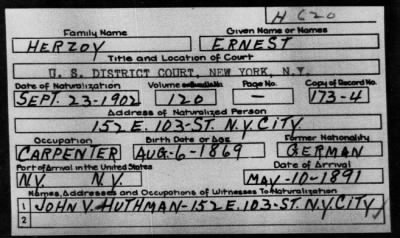 H C20
Family Name Given Name or Names
HERZOY ERNEST
Title and Location of Court
U. S. DISTRICT COURT, NEW YORK, N.Y.
Date of Naturalization Volume Page No. Copy of Record No.
SEPT. 23-1902 120 — 173-4
Address of Naturalized Person
152 E. 103-ST. N.Y. CITY
Occupation Birth Date or Age Former Nationality
CARPENTER AUG-6-1869 GERMAN
Port of Arrival in the United States Date of Arrival
N.Y. N.Y. MAY-10-1891
Names, Addresses and Occupations of Witnesses To Naturalization
1 JOHN V. HUTHMAN-152 E. 103-ST. N.Y. CITY
2